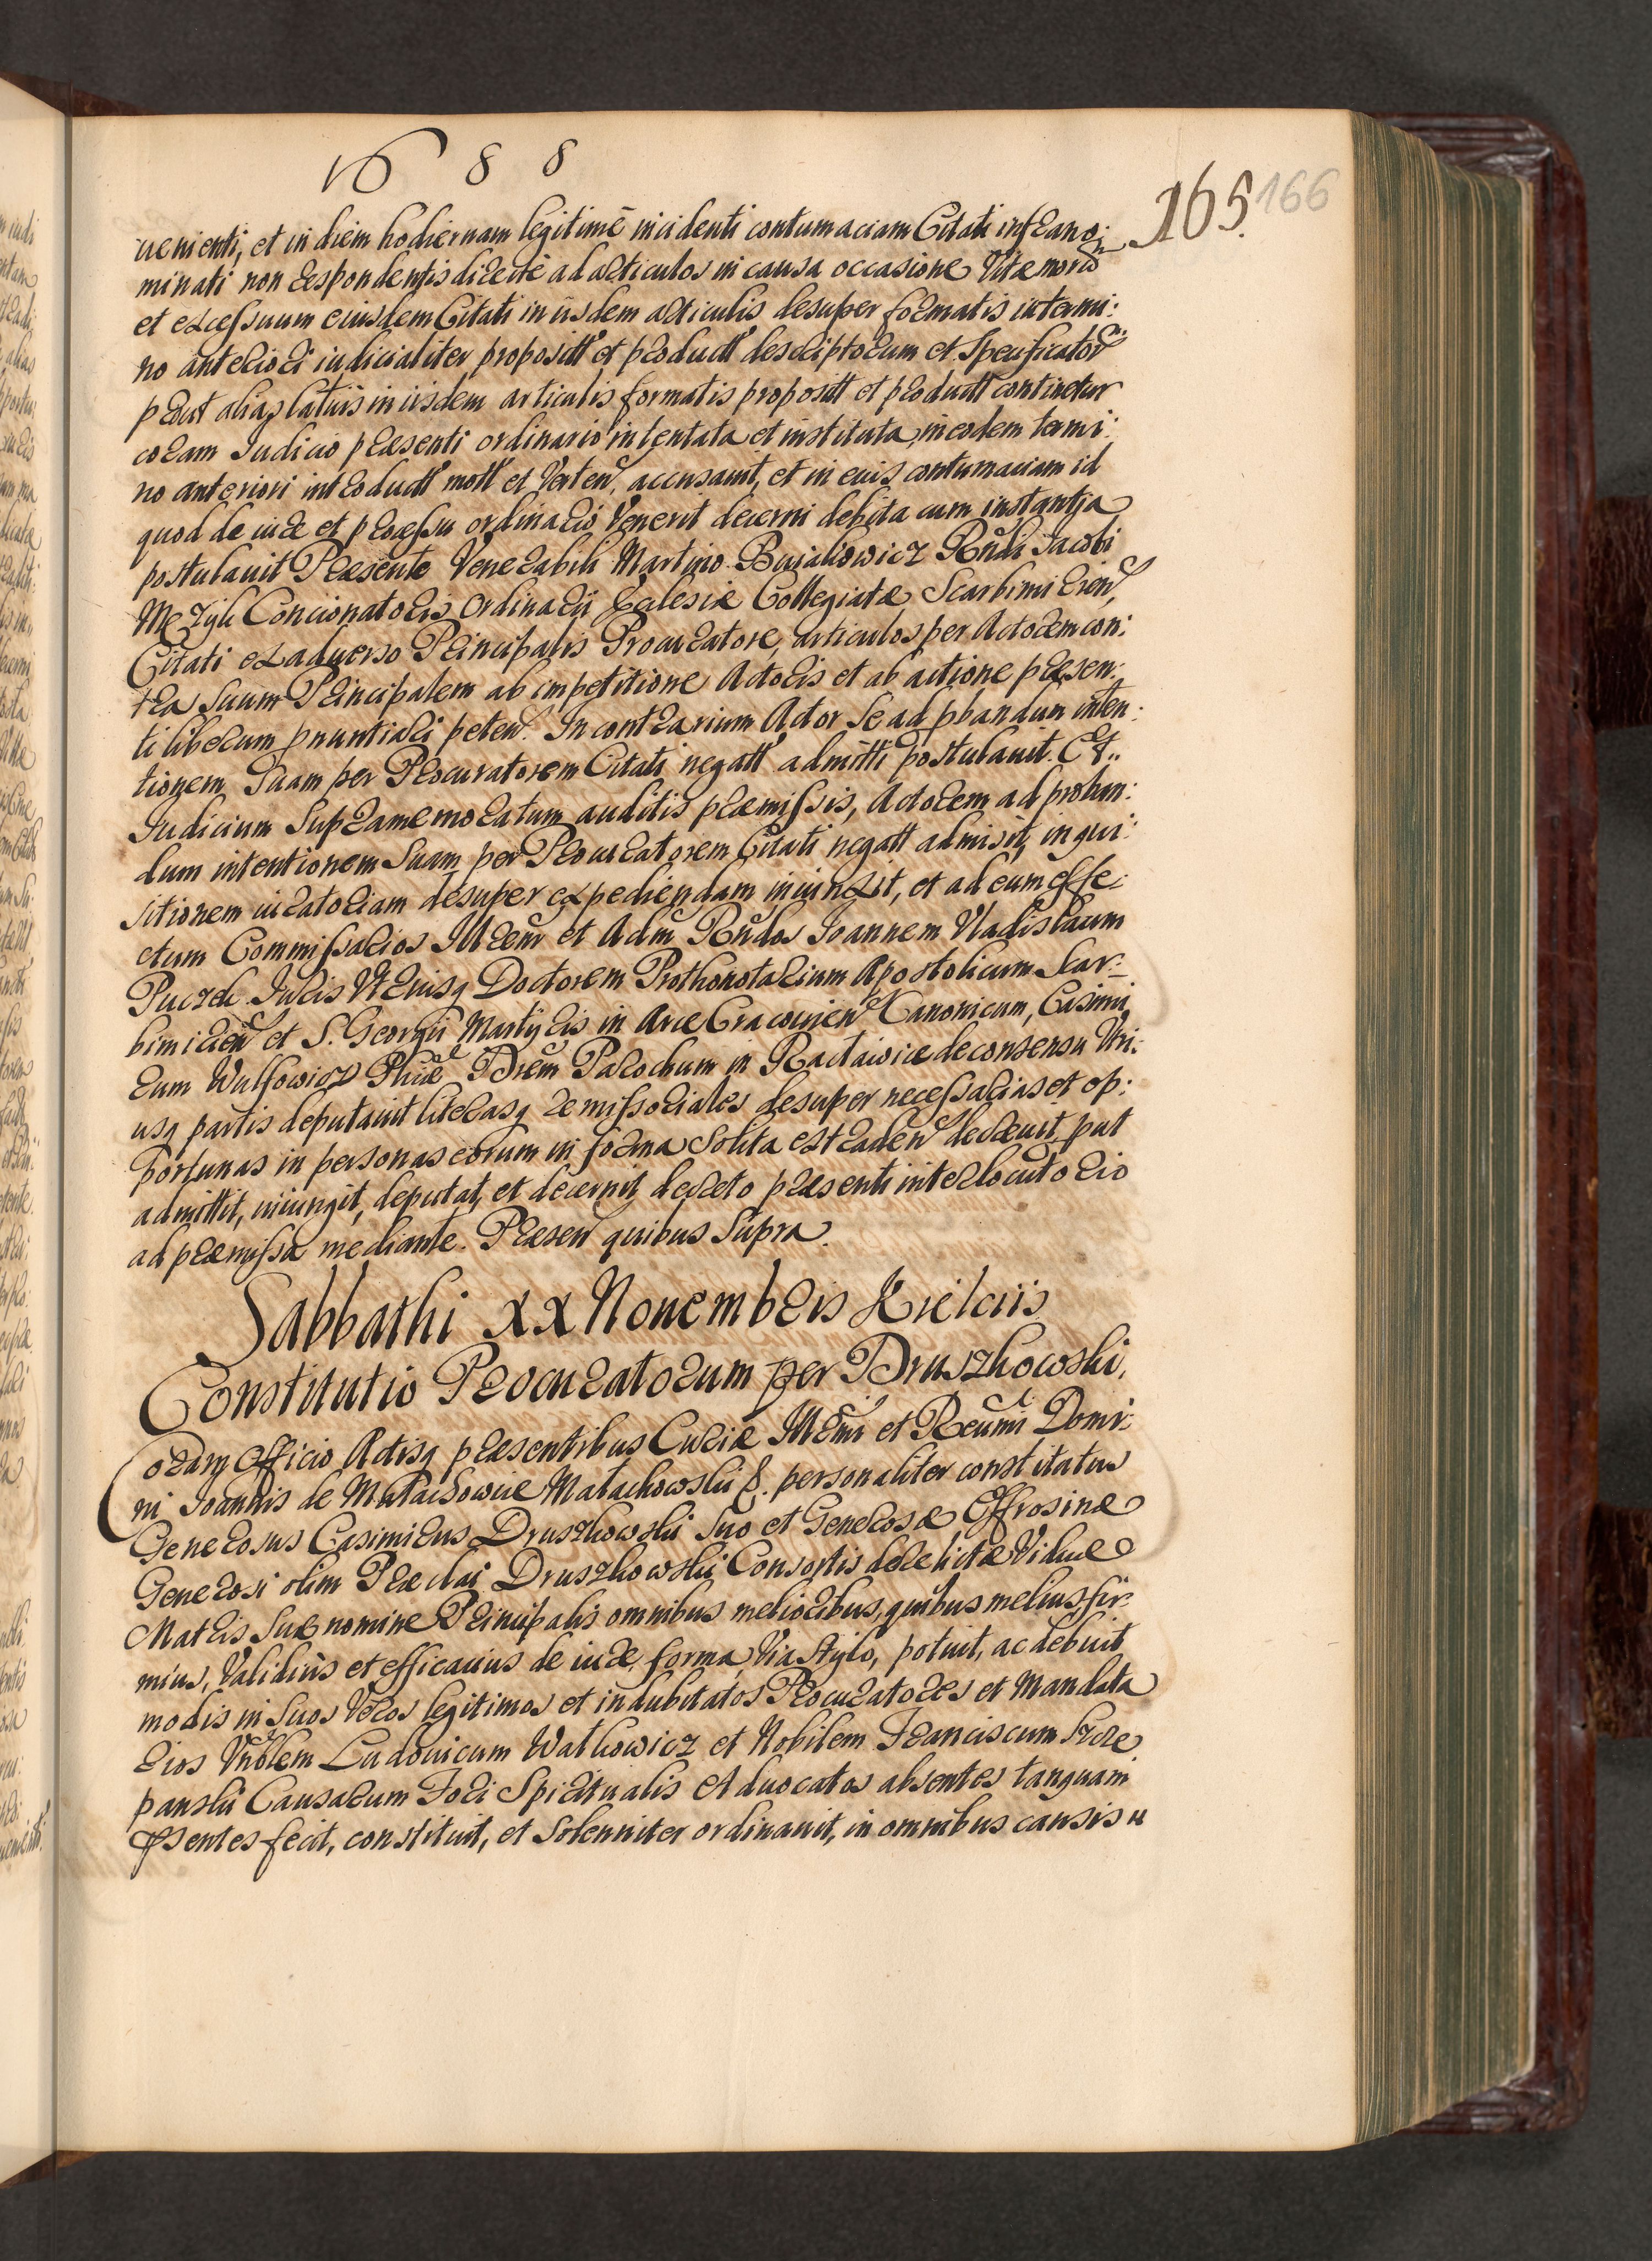 1688
165. 166
uenienti, et in diem hodiernam legitimè incidenti contumaciam Citati infrano:
minati non respondentis directè ad articulos in causa occasione Vitæ morũ
et excessuum eiusdem Citati in iisdem articulis desuper formatis in termi:
no anteriori iudicialiter propositt et product descriptorum et Specificator
prout aliaq latius in iisdem articulis formatis proposit et product continetur
coram Iudicio præsenti ordinario intentata et instituta, in eodem termi:
no anteriori introduct mott et Verten, accusauit, et in euis contumaciam id
quod de iure et processu ordinario Venerit decerni debita cum instantja
postulauit Præsente Venerabili Martino Bujakowicz Rndi Jacobi
Mezyk Concionatoris Ordinarii Ecclesiæ Collegiatæ Scarbimirien,
Citati ex aduerso Principalis Procuratore, articulos per Actorem con:
tra Suum Principalem ab impetitione Actoris et ab actione præsen:
ti liberum pnuntiari peten. In contrarium Actor Se ad pbandum inten:
tionem Suam per Procuratorem Citati negatt admitti postulauit. Et..
Iudicium Supramemoratum auditis præmissis, Actorem ad proban:
dum intentionem Suam per Procuratorem Citati negatt admisit, inqui:
sitionem iuratoriam desuper expediendam iniunxit, et ad eum effe:
ctum Commissarios Illrem et Adm Rndos Ioannem Vladislaum
Puczek Iuris Vtriusq Doctorem Prothonotarium Apostolicum Scar:
bimirien et S. Georgii Martyris in Arce Cracouien Canonicum, Casimi
rum Wulfowicz Phiæ Drem Parochum in Ractawice de consensu Vtri:
usq partis deputauit literasq remissoriales desuper necessarias et op:
portunas in personas eorum in forma Solita extraden decreuit, put
admittit, iniungit, deputat, et decernit, decreto præsenti interlocutorio
ad præmissa mediante. Præsen quibus Supra.
Sabbathi XX Nouembris Kielciis
Constitutio Procuratorum per Druszkowski.
Coram Officio Actisq præsentibus Curiæ Illrmi et Reumi Domi:
ni Ioannis de Małachowice Małachowski &. personaliter constitutus
Generosus Casimirus Druszkowski Suo et Generosæ Offrosinæ
Generosi olim Druszkowski Consortis derelictæ Viduæ
Matris Suæ nomine Principalis omnibus melioribus, quibus melius fir:
mius, Validius et efficacius de iure, forma, Via stylo, potuit, ac debuit
modis in Suos Veros legitimos et indubitatos Procuratores et Mandata
rios Vnblem Ludouicum Watkowicz et Nobilem Franciscum Szcze
panski Causarum Fori Spiritualis Aduocatos absentes tanquam
psentes fecit, constituit, et Solenniter ordinauit, in omnibus causis